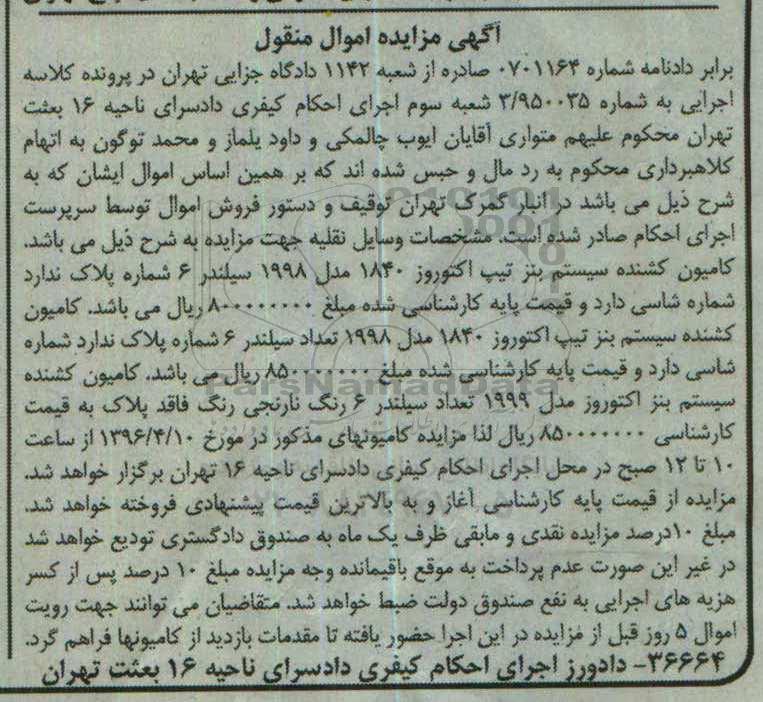 آگهی مزایده اموال منقول
برابر دادنامه شماره ۰۷۰۱۱۶۴ صادره از شعبه ۱۱۴۲ دادگاه جزایی تهران در پرونده کلاسه
اجرایی به شماره ۳/۹۵۰۰۳۵ شعبه سوم اجرای احکام کیفری دادسرای ناحیه ۱۶ بعثت
تهران محکوم علیهم متواری آقایان ایوب چالمکی و داود یلماز و محمد توگون به اتهام
کلاهبرداری محکوم به رد مال و حبس شده اند که بر همین اساس اموال ایشان که به
شرح ذیل می باشد در انبار گمرک تهران توقیف و دستور فروش اموال توسط سرپرست
اجرای احکام صادر شده است. مشخصات وسایل نقلیه جهت مزایده به شرح ذیل می باشد.
کامیون کشنده سیستم بنز تیپ اکتوروز ۱۸۴۰ مدل ۱۹۹۸ سیلندر ۶ شماره پلاک ندارد
شماره شاسی دارد و قیمت پایه کارشناسی شده مبلغ ۸۰۰۰۰۰۰۰۰ ریال می باشد. کامیون
کشنده سیستم بنز تیپ اکتوروز ۱۸۴۰ مدل ۱۹۹۸ تعداد سیلندر ۶ شماره پلاک ندارد شماره
شاسی دارد و قیمت پایه کارشناسی شده مبلغ ۸۵۰۰۰۰۰۰۰ ریال می باشد. کامیون کشنده
سیستم بنز اکتوروز مدل ۱۹۹۹ تعداد سیلندر ۶ رنگ نارنجی رنگ فاقد پلاک به قیمت
کارشناسی ۸۵۰۰۰۰۰۰۰ ریال لذا مزایده کامیونهای مذکور در مورخ ۱۳۹۶/۴/۱۰ از ساعت
۱۰ تا ۱۲ صبح در محل اجرای احکام کیفری دادسرای ناحیه ۱۶ تهران برگزار خواهد شد.
مزایده از قیمت پایه کارشناسی آغاز و به بالاترین قیمت پیشنهادی فروخته خواهد شد.
مبلغ ۱۰درصد مزایده نقدی و مابقی ظرف یک ماه به صندوق دادگستری تودیع خواهد شد
در غیر این صورت عدم پرداخت به موقع باقیمانده وجه مزایده مبلغ ۱۰ درصد پس از کسر
هزینه های اجرایی به نفع صندوق دولت ضبط خواهد شد. متقاضیان می توانند جهت رویت
اموال ۵ روز قبل از مزایده در این اجرا حضور یافته تا مقدمات بازدید از کامیونها فراهم گرد.
۳۶۶۶۴- دادورز اجرای احکام کیفری دادسرای ناحیه ۱۶ بعثت تهران
ParsNamadData